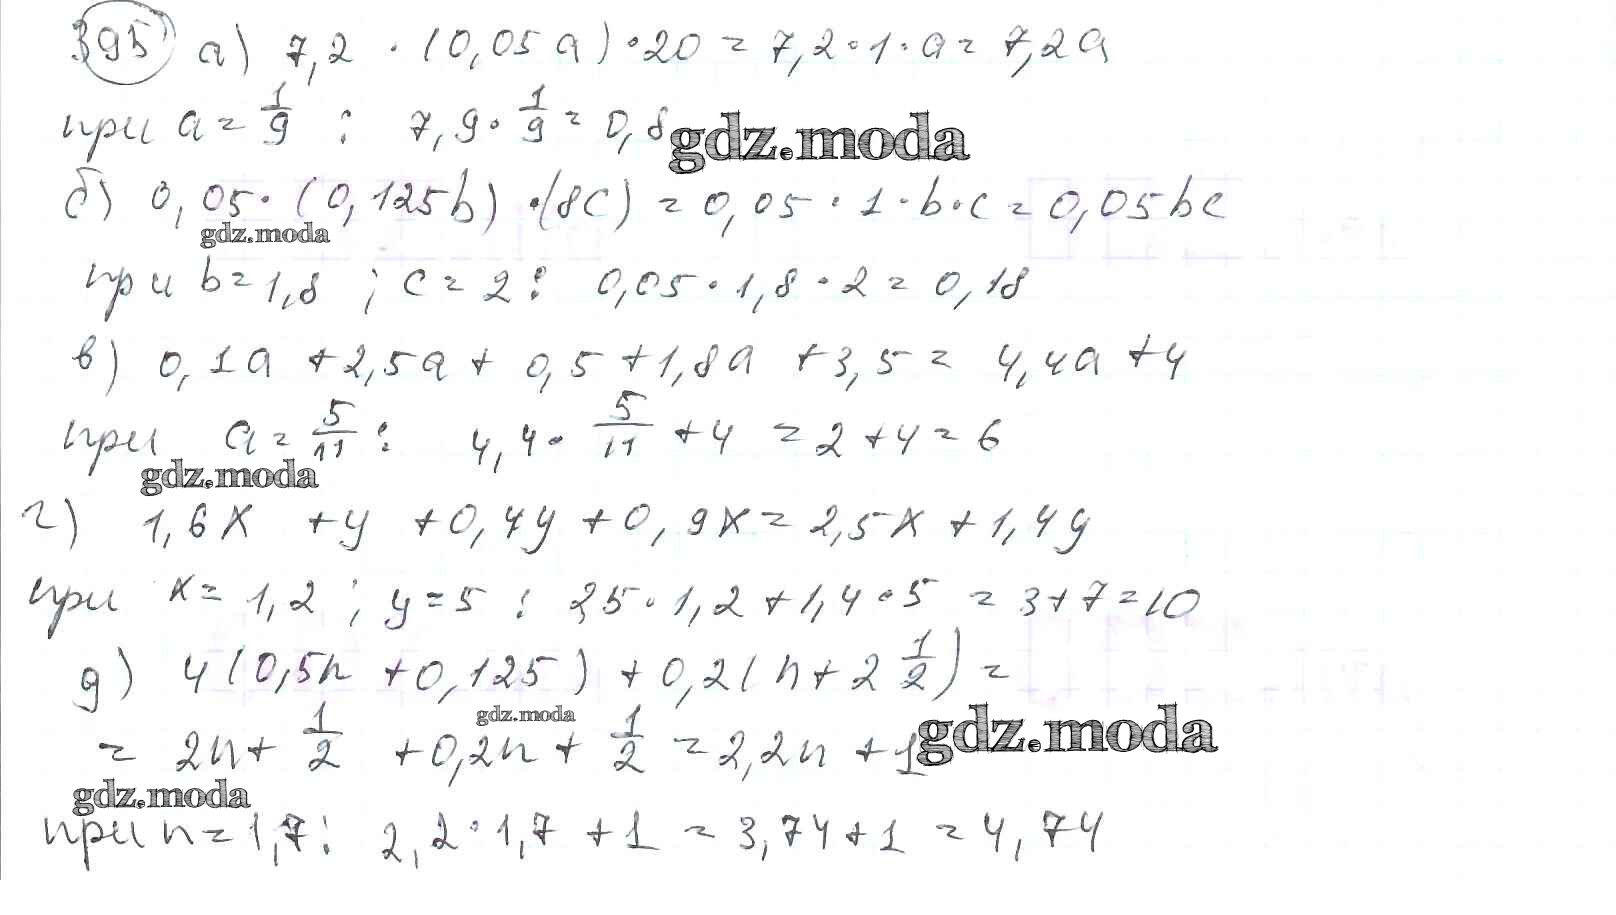 395 а) 7,2 · (0,05a) · 20 = 7,2 · 1 · a = 7,2a
при a = 1/9 : 7,9 · 1/9 = 0,8
gdz.moda
б) 0,05 · (0,125b) · (8c) = 0,05 · 1 · b · c = 0,05bc
gdz.moda
при b = 1,8 ; c = 2 : 0,05 · 1,8 · 2 = 0,18
в) 0,1a + 2,5a + 0,5 + 1,8a + 3,5 = 4,4a + 4
при a = 5/11 : 4,4 · 5/11 + 4 = 2 + 4 = 6
gdz.moda
г) 1,6x + y + 0,4y + 0,9x = 2,5x + 1,4y
при x = 1,2 ; y = 5 : 2,5 · 1,2 + 1,4 · 5 = 3 + 7 = 10
д) 4(0,5n + 0,125) + 0,2(n + 2 1/2) =
gdz.moda
= 2n + 1/2 + 0,2n + 1/2 = 2,2n + 1
gdz.moda
gdz.moda
при n = 1,7 : 2,2 · 1,7 + 1 = 3,74 + 1 = 4,74